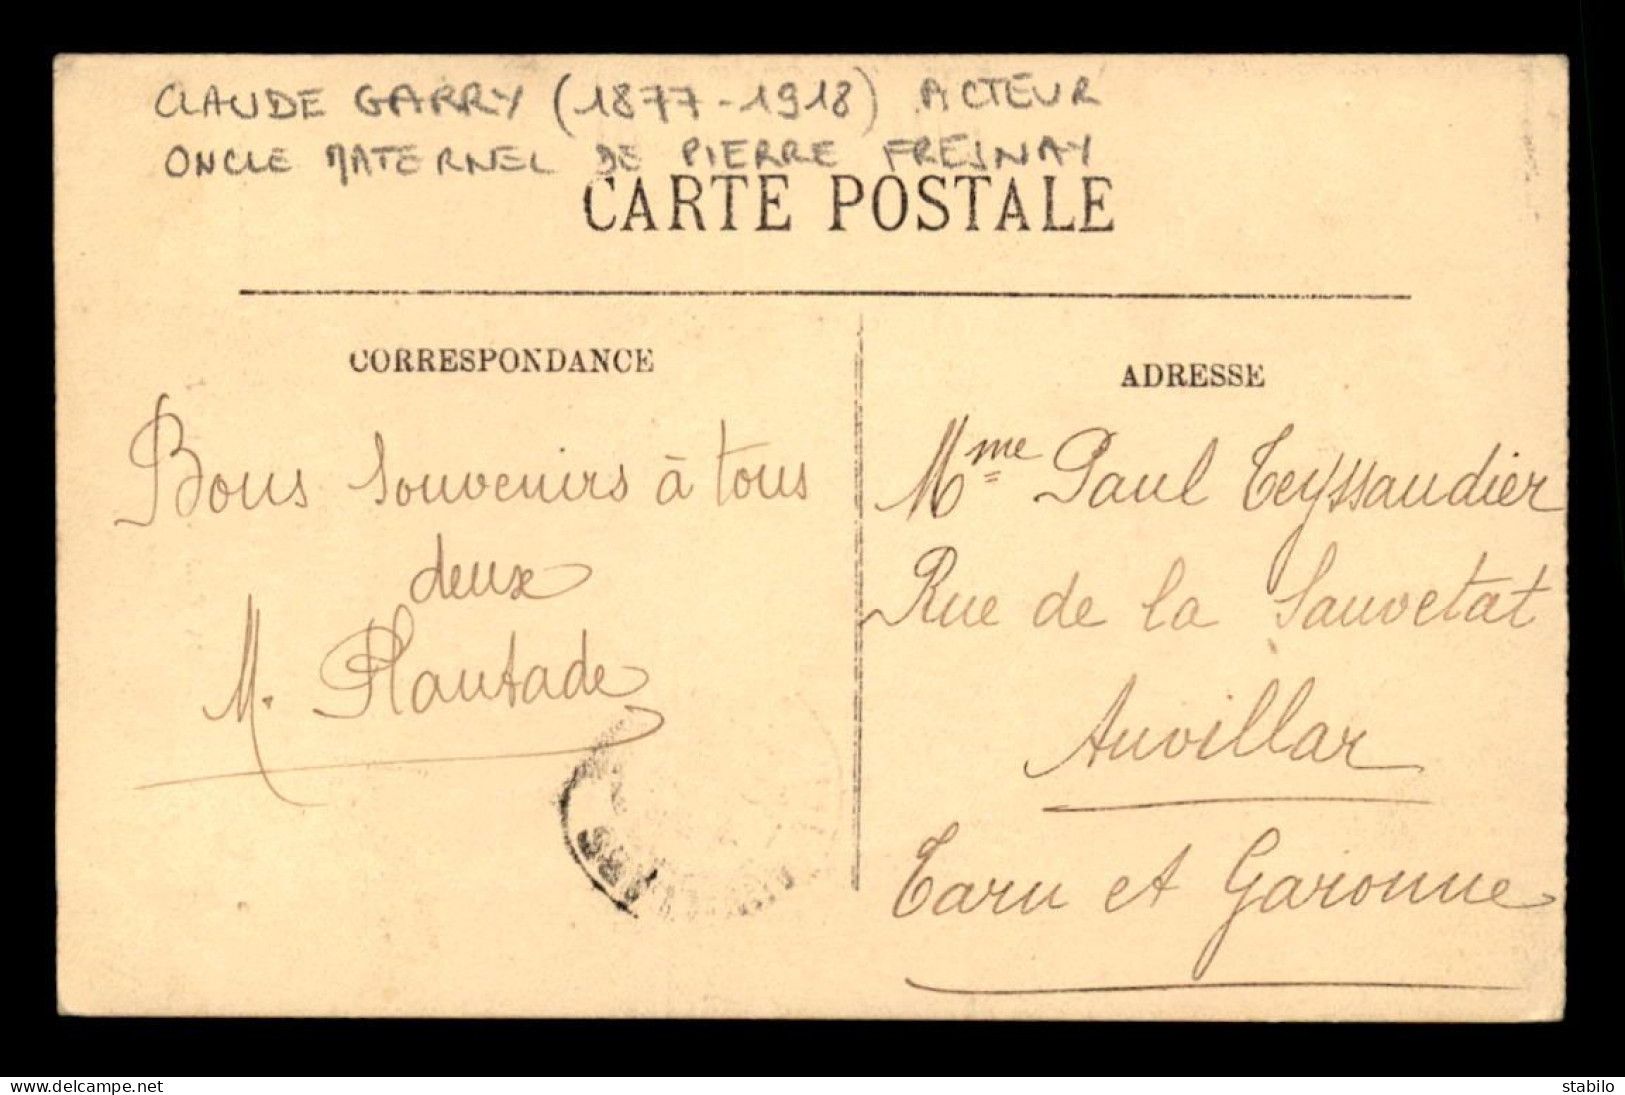 CLAUDE GARRY (1877-1918) ACTEUR
ONCLE MATERNEL DE PIERRE FRESNAY
CARTE POSTALE
CORRESPONDANCE
Bons souvenirs à tous
deux
M. Plantade
ADRESSE
Mme Paul Teyssaudier
Rue de la Sauvetat
Auvillar
Tarn et Garonne
www.delcampe.net
stabilo